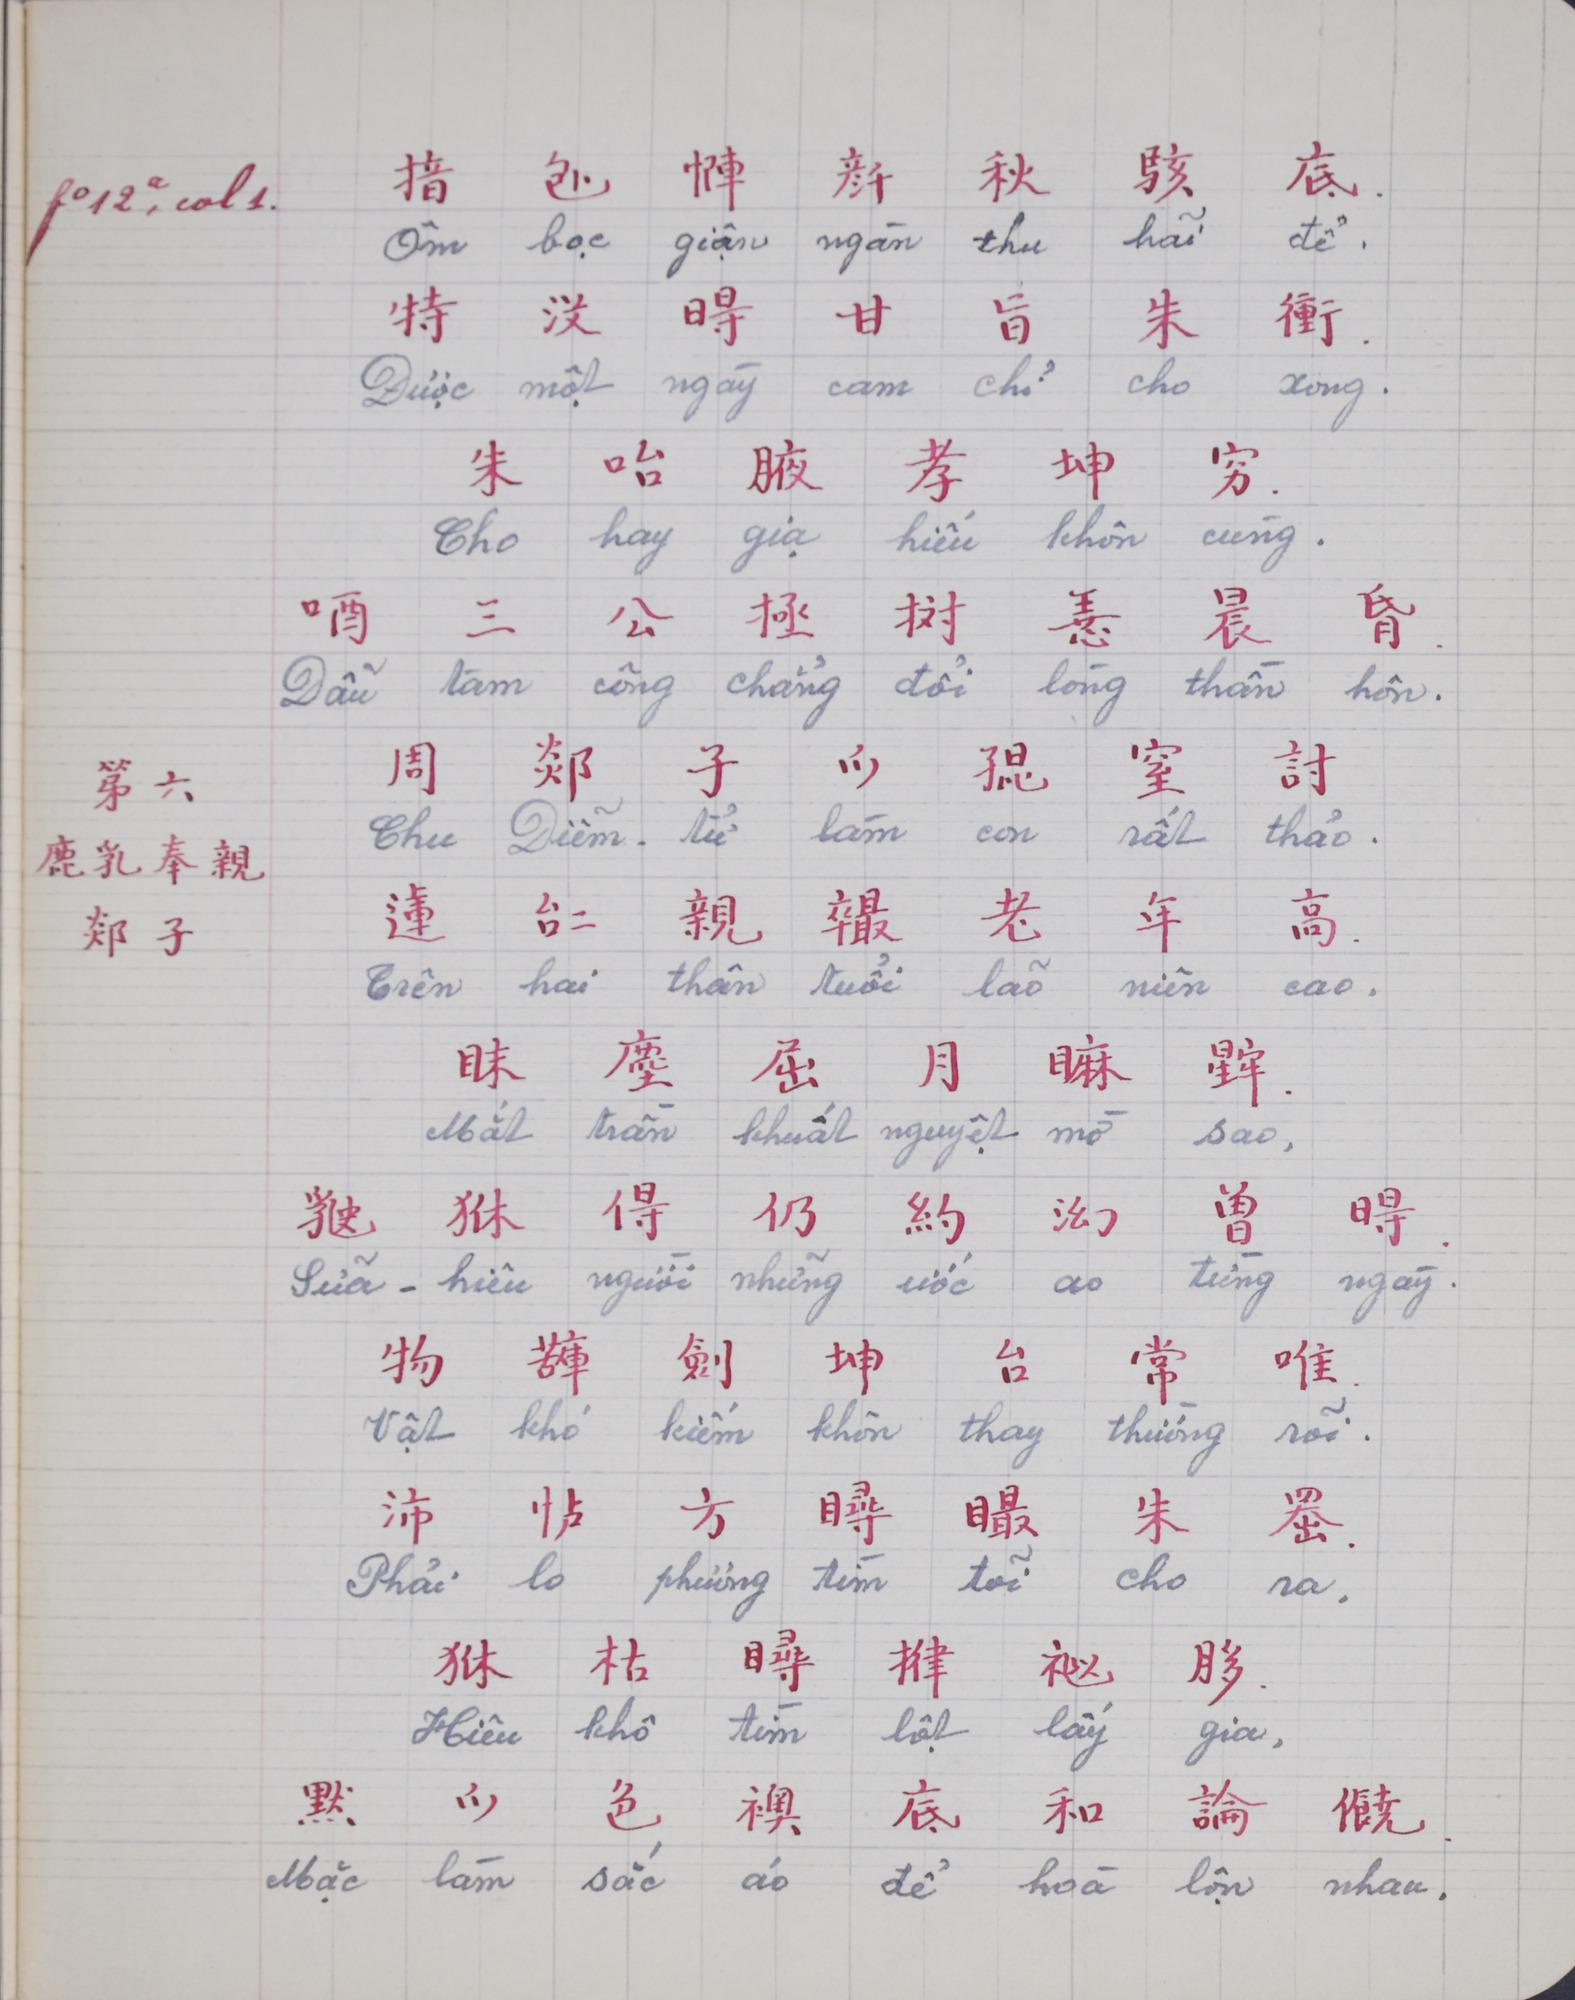 fº 12ª, col 1.
揞 𢃊 惲 𠦳 秋 駭 底.
Ôm bọc giận ngàn thu hãi để.
特 没 㝵 甘 旨 朱 衝.
Được một ngày cam chỉ cho xong.
朱 咍 腋 孝 坤 穷.
Cho hay giạ hiếu khôn cùng.
唒 三 公 拯 𢬭 𢚸 晨 昏.
Dẫu tam công chẳng đổi lòng thần hôn.
第 六
鹿 乳 奉 親
郯 子
周 郯 子 𫜵 𡥵 窒 討
Chu Diễm-tử làm con rất thảo.
𨕭 𠄩 親 𢆫 老 年 高.
Trên hai thân tuổi lão niên cao.
眜 塵 屈 月 𥊚 𣋀.
Mắt trần khuất nguyệt mờ sao,
𣷱 狖 㝵 仍 約 泑 曾 㝵.
Sữa-hiêu người những ước ao từng ngày.
物 𧁷 劍 坤 台 常 唯.
Vật khó kiếm khôn thay thường rồi.
沛 怗 方 𥊀 𥋳 朱 𠚢.
Phải lo phương tìm tõi cho ra.
狖 枯 𥊀 𢯰 𥙩 𦢞.
Hiêu khô tìm lột lấy gia,
默 𫜵 色 襖 底 和 論 𠑬.
Mặc làm sắc áo để hoà lộn nhau.